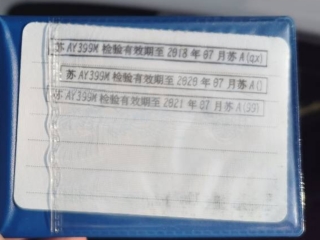 苏AY399M 检验有效期至 2018 年 07 月苏A(qx)
苏AY399M 检验有效期至 2020 年 07 月苏A(
苏AY399M 检验有效期至 2021 年 07 月苏A(99)